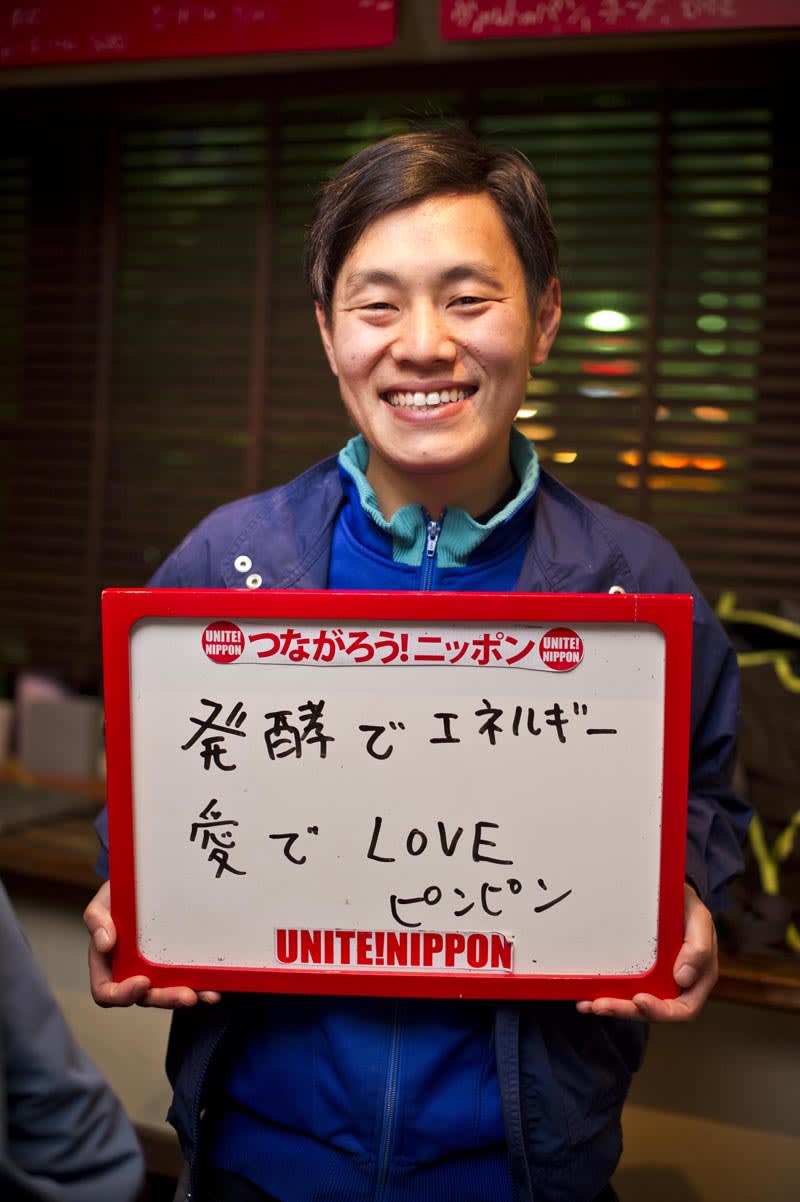 UNITE! NIPPON つながろう!ニッポン UNITE! NIPPON
発酵でエネルギー
愛でLOVE
ピンピン
UNITE!NIPPON